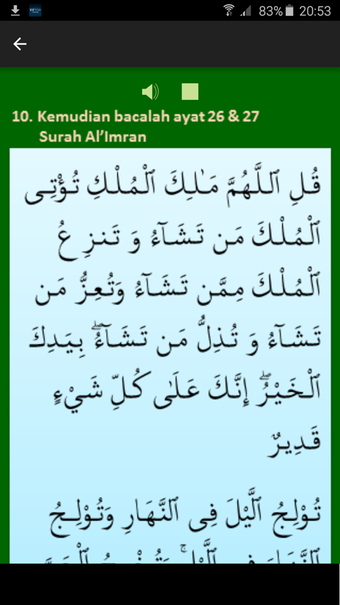 83% 20:53
10. Kemudian bacalah ayat 26 & 27
Surah Al’Imran
قُلِ ٱللَّهُمَّ مَـٰلِكَ ٱلْمُلْكِ تُؤْتِى
ٱلْمُلْكَ مَن تَشَآءُ وَ تَنزِعُ
ٱلْمُلْكَ مِمَّن تَشَآءُ وَتُعِزُّ مَن
تَشَآءُ وَ تُذِلُّ مَن تَشَآءُۖ بِيَدِكَ
ٱلْخَيْرُۖ إِنَّكَ عَلَىٰ كُلِّ شَىْءٍ
قَدِيرٌ
تُولِجُ ٱلَّيْلَ فِى ٱلنَّهَارِ وَتُولِجُ